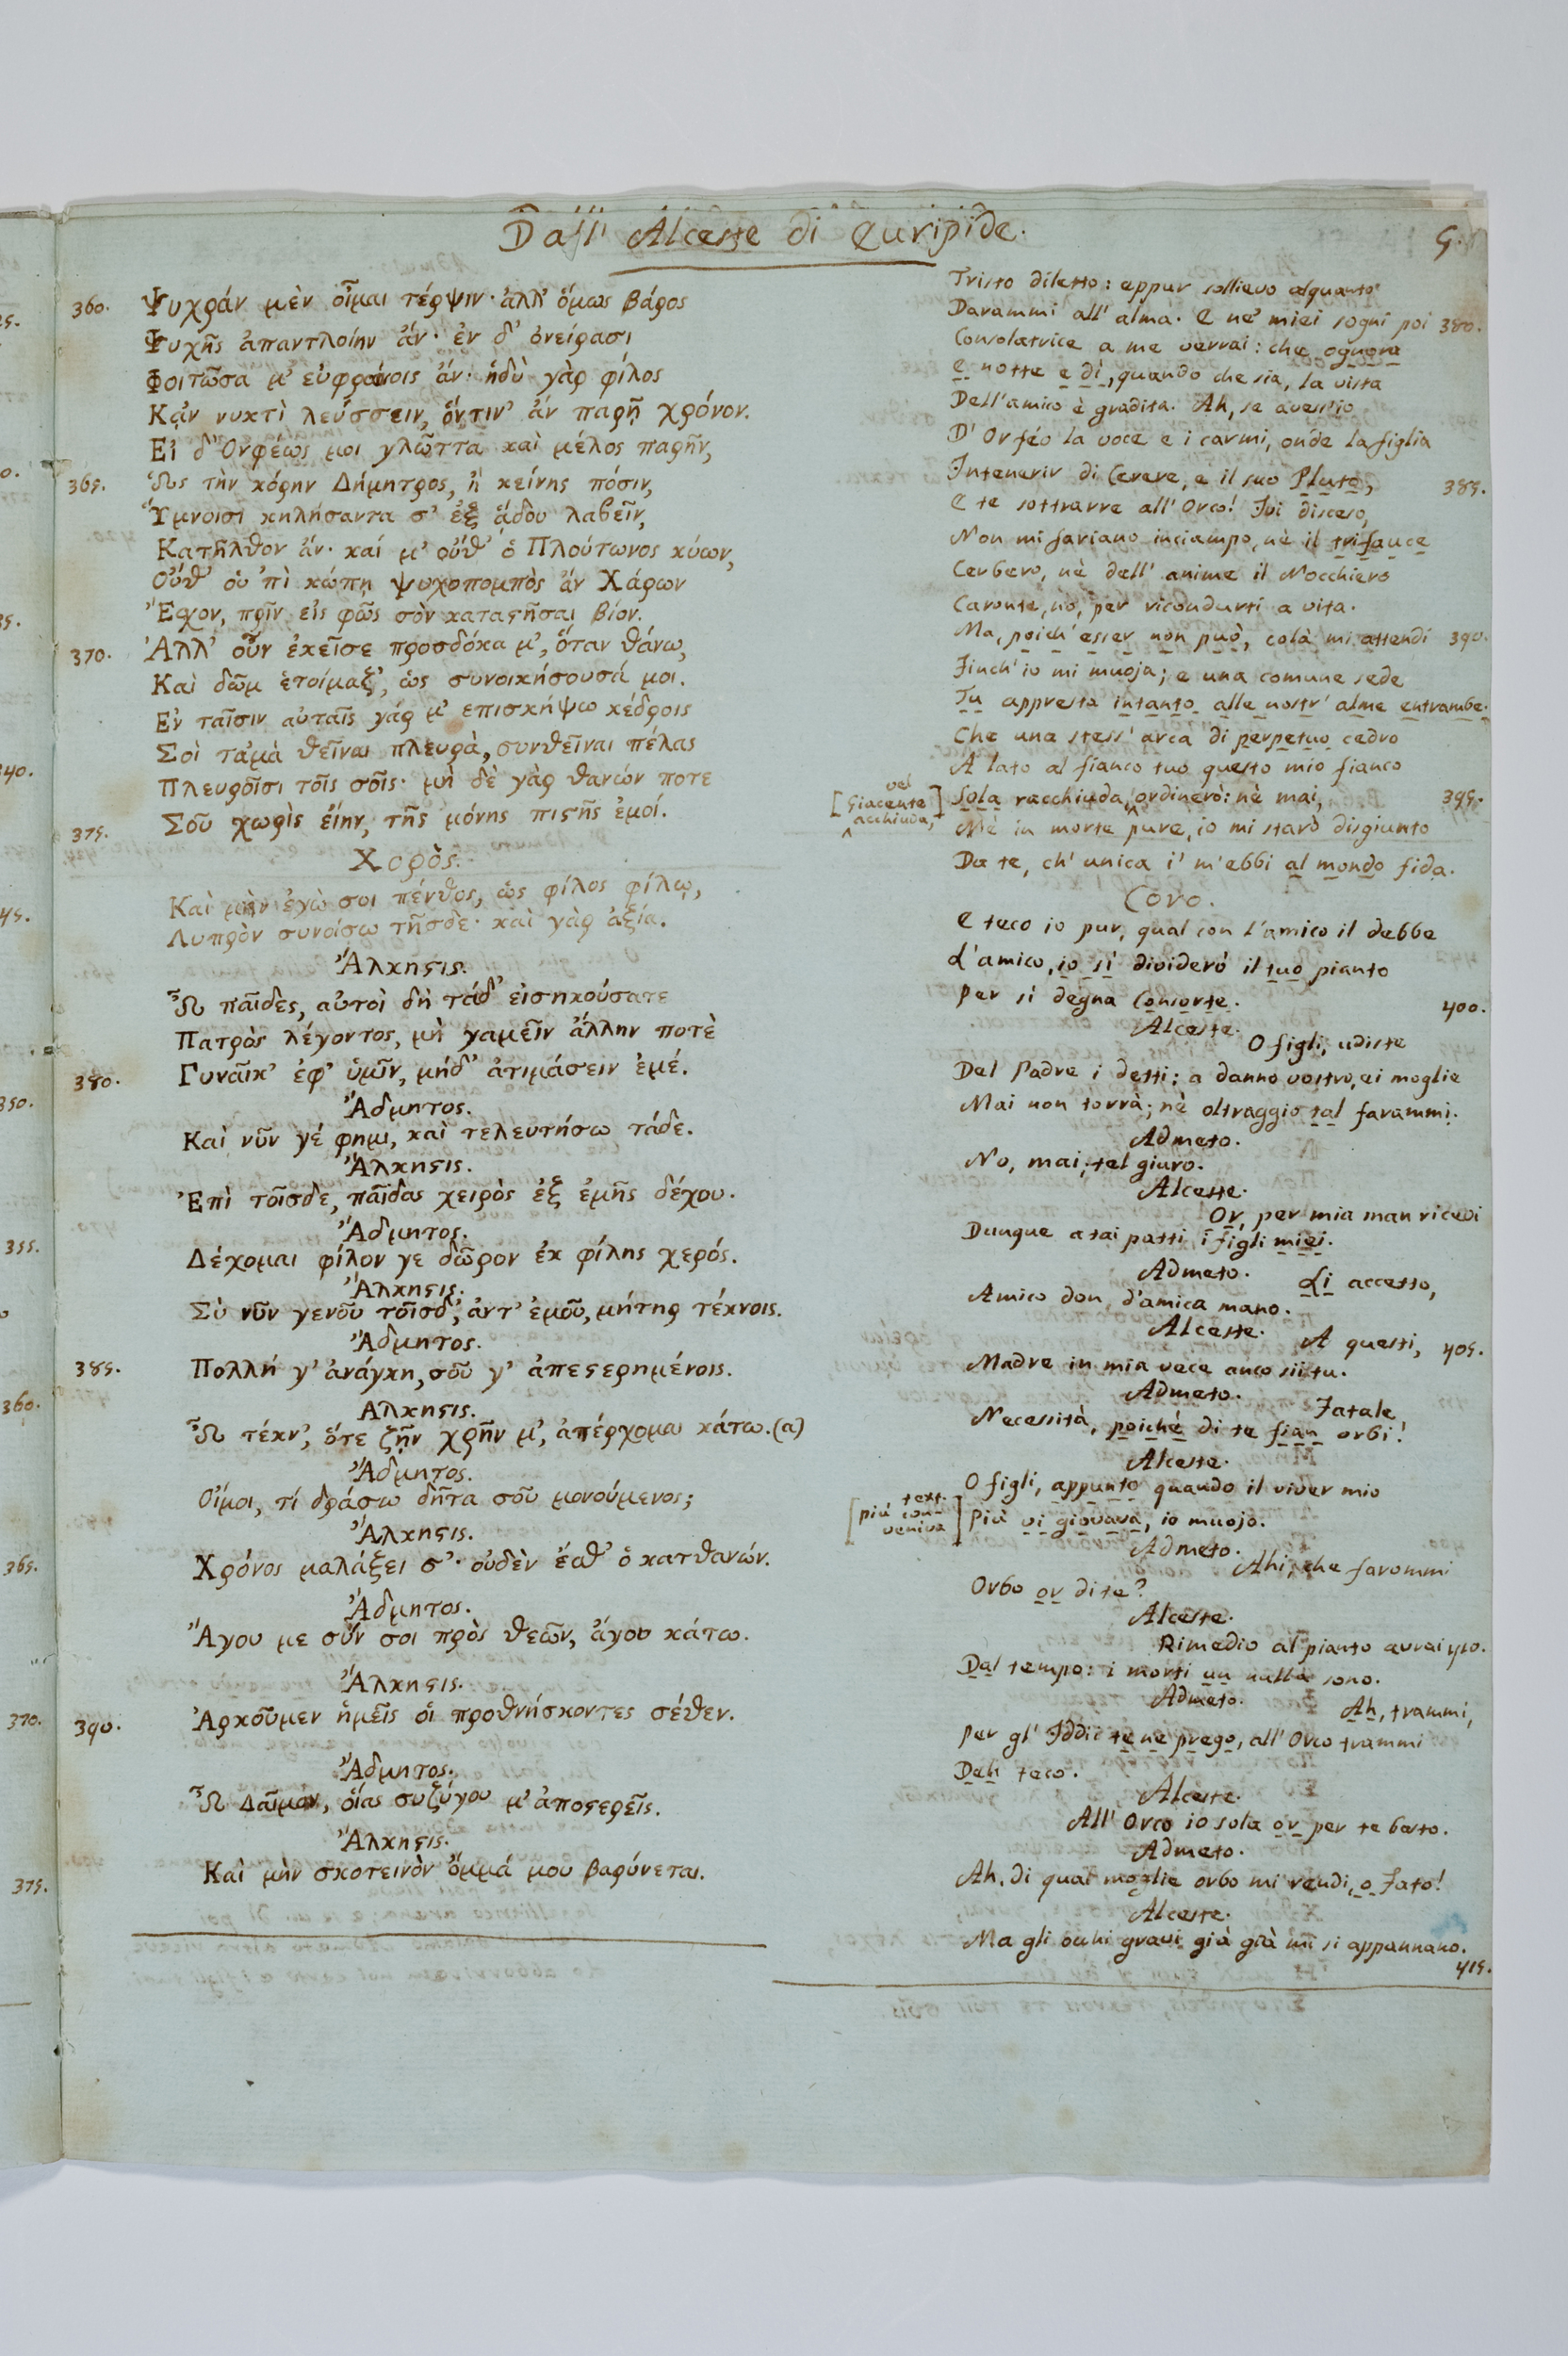 Dall' Alceste di Euripide.
5.
360. Ψυχράν μὲν οἶμαι τέρψιν· ἀλλ' ὅμως βάρος
Ψυχῆς ἀπαντλοίην ἄν· ἐν δ' ὀνείρασι
Φοιτῶσα μ' εὐφραίνοις ἄν· ἡδὺ γὰρ φίλος
Κᾂν νυκτὶ λεύσσειν, ὅντιν' ἄν παρῇ χρόνον.
Εἰ δ' Ὀρφέως μοι γλῶττα καὶ μέλος παρῆν,
365. Ὡς τὴν κόρην Δήμητρος, ἢ κείνης πόσιν,
Ὕμνοισι κηλήσαντα σ' ἐξ ᾅδου λαβεῖν,
Κατῆλθον ἄν· καί μ' οὔθ' ὁ Πλούτωνος κύων,
Οὔθ' οὑ 'πὶ κώπῃ ψυχοπομπὸς ἄν Χάρων
Ἔσχον, πρὶν εἰς φῶς σὸν καταςῆσαι βίον.
370. Ἀλλ' οὖν ἐκεῖσε προσδόκα μ', ὅταν θάνω,
Καὶ δῶμ' ἑτοίμαζ', ὡς συνοικήσουσά μοι.
Ἐν ταῖσιν αὐταῖς γάρ μ' επισκήψω κέδροις
Σοὶ τἀμὰ θεῖναι πλευρὰ, συνθεῖναι πέλας
Πλευροῖσι τοῖς σοῖς· μὴ δὲ γὰρ θανών ποτε
375. Σοῦ χωρὶς εἴην, τῆς μόνης πιςῆς ἐμοί.
Χορὸς.
Καὶ μὴν ἐγώ σοι πένθος, ὡς φίλος φίλῳ,
Λυπρὸν συνοίσω τῆσδε· καὶ γὰρ ἀξία.
Ἄλκηςις.
Ὦ παῖδες, αὐτοὶ δὴ τάδ' εἰσηκούσατε
Πατρὸς λέγοντος, μὴ γαμεῖν ἄλλην ποτὲ
380. Γυναῖκ' ἐφ' ὑμῖν, μήδ' ἀτιμάσειν ἐμέ.
Ἄδμητος.
Καὶ νῦν γέ φημι, καὶ τελευτήσω τάδε.
Ἄλκηςις.
Ἐπὶ τοῖσδε, παῖδας χειρὸς ἐξ ἐμῆς δέχου.
Ἄδμητος.
Δέχομαι φίλον γε δῶρον ἐκ φίλης χερός.
Ἄλκηςις.
Σὺ νῦν γενοῦ τοῖσδ', ἀντ' ἐμοῦ, μήτηρ τέκνοις.
Ἄδμητος.
385. Πολλή γ' ἀνάγκη, σοῦ γ' ἀπεςερημένοις.
Αλκηςις.
Ὦ τέκν', ὅτε ζῇν χρῆν μ', ἀπέρχομαι κάτω. (a)
Ἄδμητος.
Οἴμοι, τί δράσω δῆτα σοῦ μονούμενος;
Ἄλκηςις.
Χρόνος μαλάξει σ'· οὐδὲν ἔσθ' ὁ κατθανών.
Ἄδμητος.
Ἄγου με σύν σοι πρὸς θεῶν, ἄγου κάτω.
Ἄλκηςις.
390. Ἀρκοῦμεν ἡμεῖς οἱ προθνήσκοντες σέθεν.
Ἄδμητος.
Ὦ Δαῖμον, οἵας συζύγου μ' ἀποςερεῖς.
Ἄλκηςις.
Καὶ μὴν σκοτεινὸν ὄμμά μου βαρύνεται.
Tristo diletto: eppur sollievo alquanto
Darammi all' alma. E ne' miei sogni poi 380.
Consolatrice a me verrai: che ognora
E notte e dì, quando che sia, la vista
Dell'amico è gradita. Ah, se avess'io
D' Orféo la voce e i carmi, onde la figlia
Intenerir di Cerere, e il suo Pluto, 385.
E te sottrarre all' Orco! Ivi disceso,
Non mi fariano inciampo, nè il trifauce
Cerbero, nè dell' anime il Nocchiero
Caronte, no, per ricondurti a vita.
Ma, poich' esser non può, colà mi attendi 390.
Finch' io mi muoja; e una comune sede
Tu appresta intanto alle nostr' alme entrambe.
Che una stess' arca di perpetuo cedro
A lato al fianco tuo questo mio fianco
[vel Giacente acchiuda,] Sola racchiuda, ordinerò: nè mai, 395.
Nè in morte pure, io mi starò disgiunto
Da te, ch' unica i' m'ebbi al mondo fida.
Coro.
E teco io pur, qual con l'amico il debbe
L'amico, io sì dividerò il tuo pianto
Per sì degna Consorte. 400.
Alceste.
O figli, udiste
Dal Padre i detti: a danno vostro, ei moglie
Mai non torrà; nè oltraggio tal farammi.
Admeto.
No, mai, tel giuro.
Alceste.
Or, per mia man ricevi
Dunque a tai patti i figli miei.
Admeto.
Li accetto,
Amico don, d'amica mano.
Alceste.
A questi, 405.
Madre in mia vece anco sii tu.
Admeto.
Fatale
Necessità, poichè di te fian orbi!
Alceste.
O figli, appunto quando il viver mio
[text. più conveniva] Più vi giovava, io muojo.
Admeto.
Ahi, che farommi
Orbo or di te?
Alceste.
Rimedio al pianto avrai 410.
Dal tempo: i morti un nulla sono.
Admeto.
Ah, trammi,
Per gl' Iddii te ne prego, all' Orco trammi
Deh teco.
Alceste.
All' Orco io sola or per te basto.
Admeto.
Ah, di quai moglie orbo mi rendi, o Fato!
Alceste.
Ma gli occhi gravi già già mi si appannano.
415.